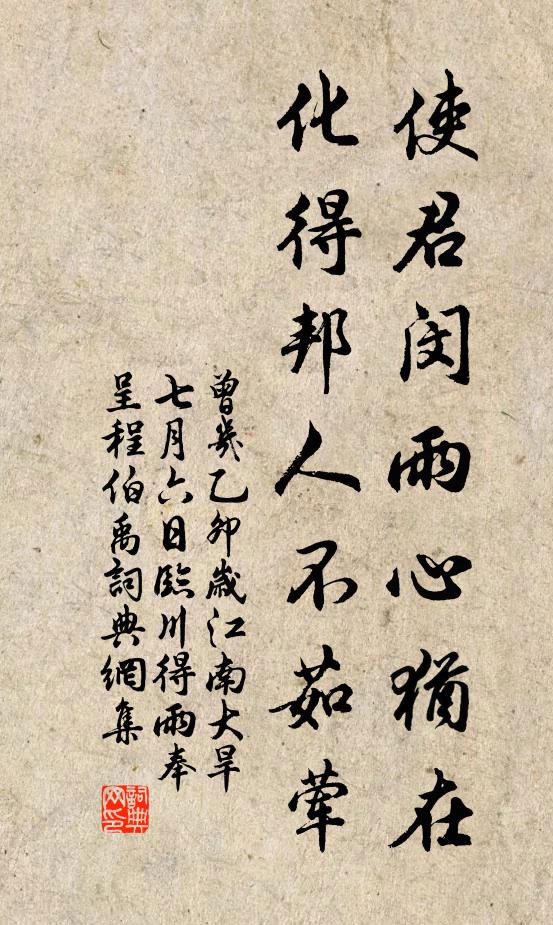 使君闵雨心犹在
化得邦人不茹荤
曾几乙卯岁江南大旱
七月六日临川得雨奉
呈程伯禹词典网集
词典网印